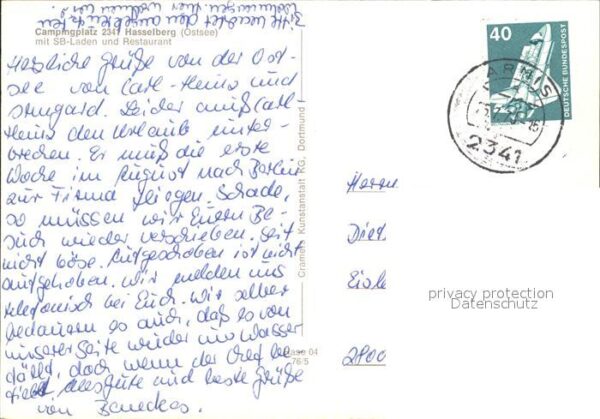 Bitte beachtet den angekreuzten
Wohnwagen, hier wohnen wir.
Campingplatz 2341 Hasselberg (Ostsee)
mit SB-Laden und Restaurant
Herzliche Grüße von der Ost-
see von Carl-Heinz und
Irmgard. Leider muß Carl-
Heinz den Urlaub unter-
brechen. Er muß die erste
Woche im August nach Berlin
zur Firma fliegen. Schade,
so müssen wir Euern Be-
such wieder verschieben. Seit
nicht böse. Aufgeschoben ist nicht
aufgehoben. Wir melden uns
telefonisch bei Euch. Wir selber
bedauern es auch, daß es von
unserer Seite wieder ins Wasser
fällt, doch wenn der Chef be-
fiehlt. Alles Gute und beste Grüße
von
Cramers Kunstanstalt KG, Dortmund
04
76/5
40
DEUTSCHE BUNDESPOST
2341
Herrn
2800
privacy protection
Datenschutz